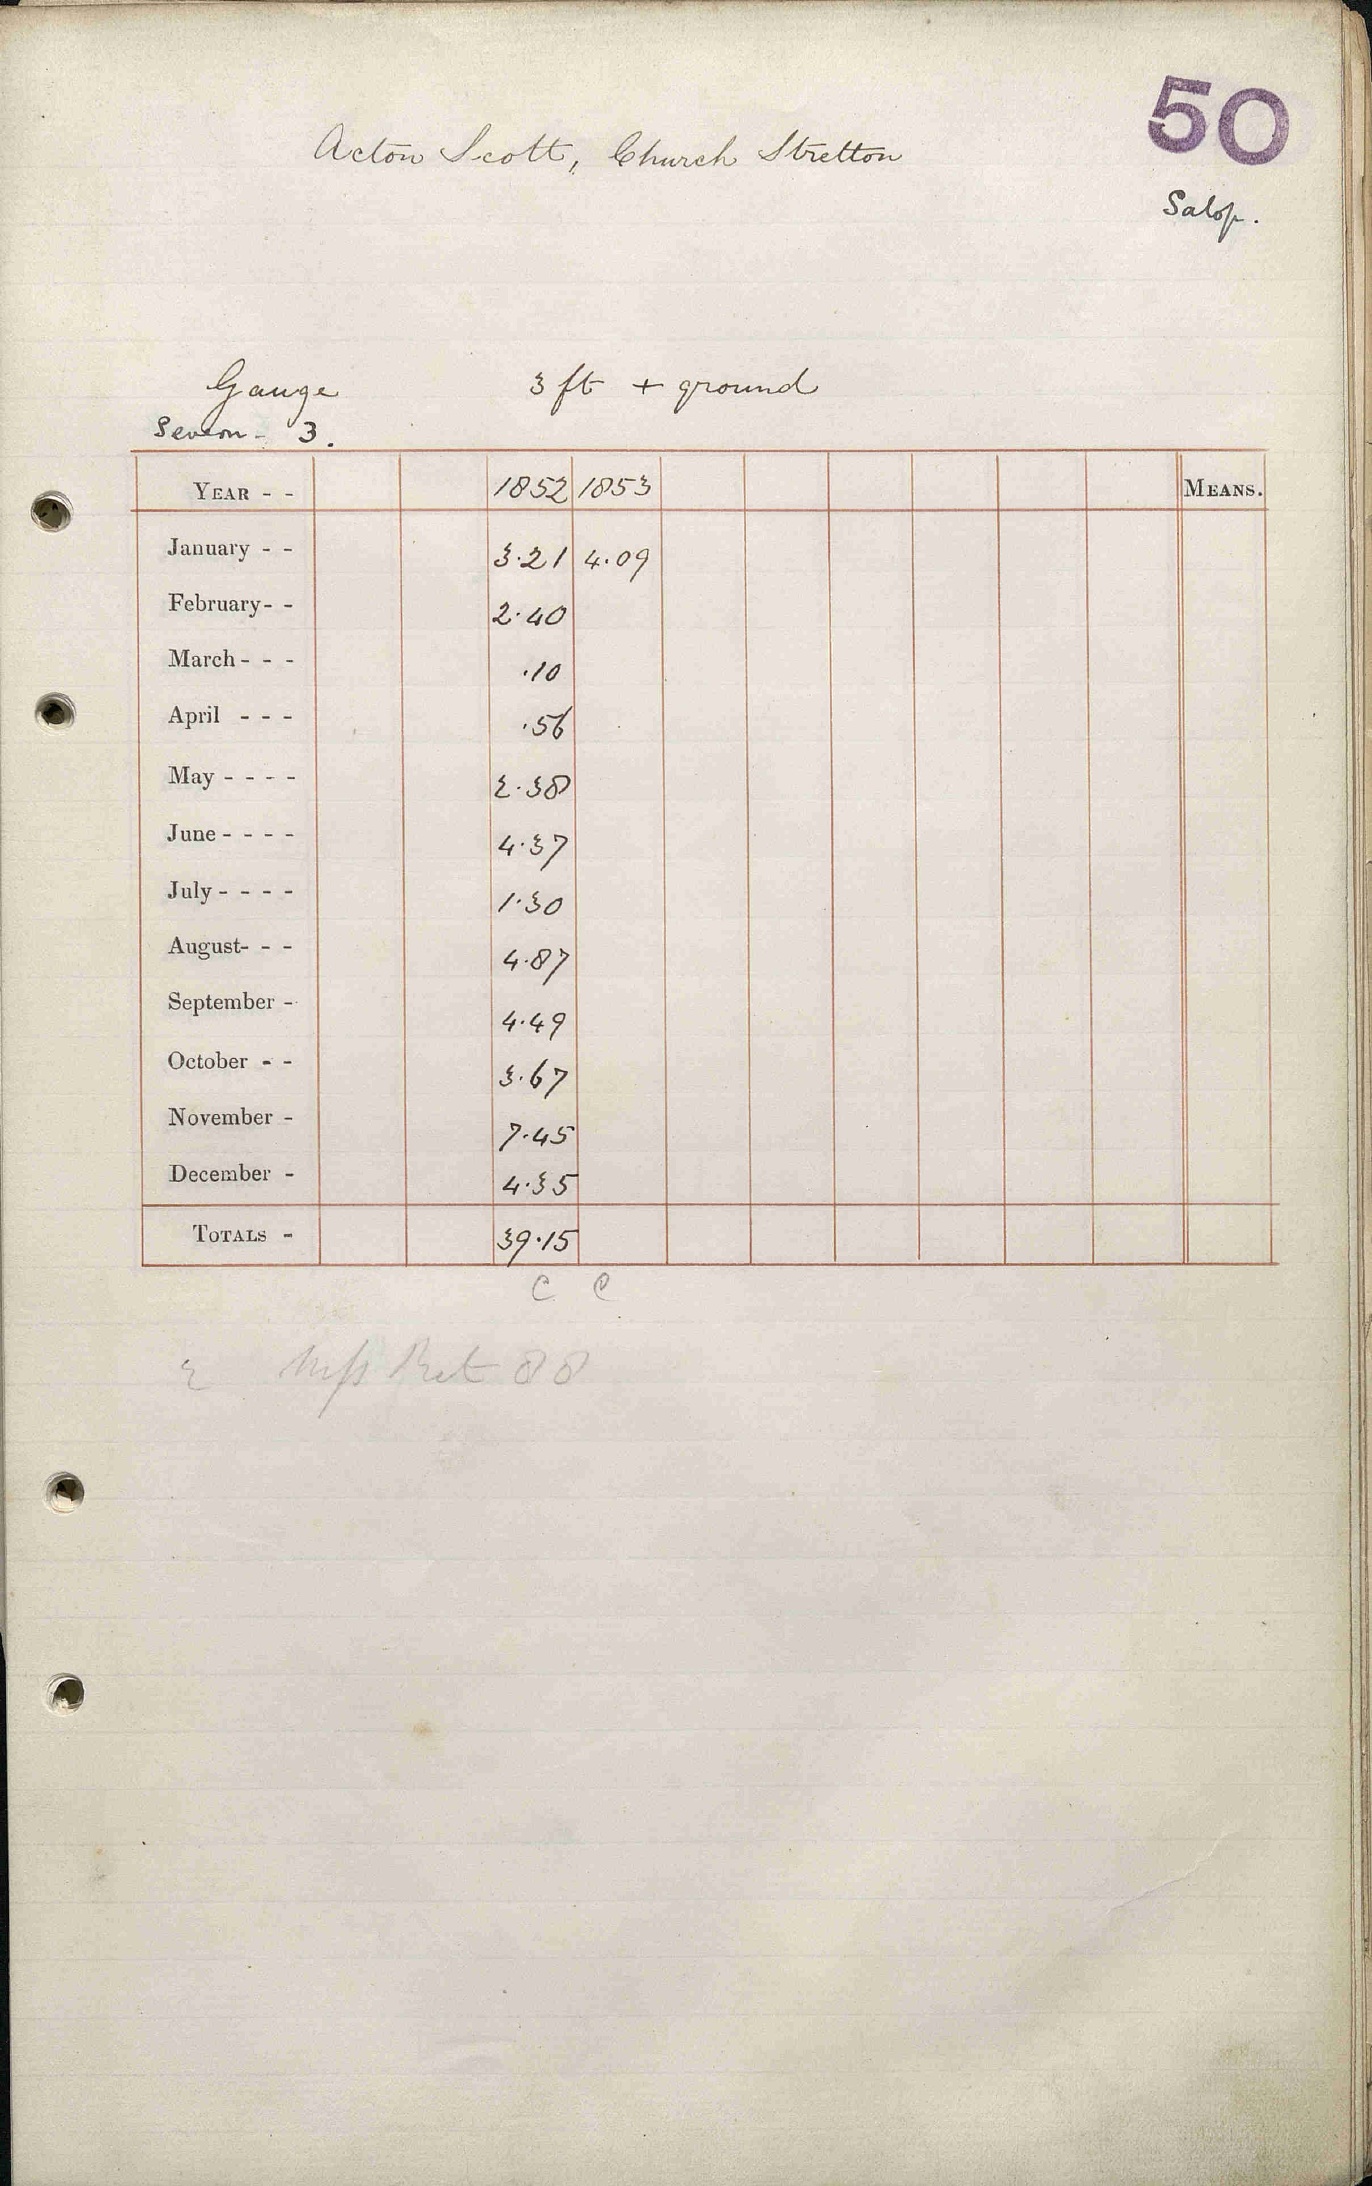 50
Acton Scott, Church Stretton
Salop.
Gauge 3 ft + ground
Severn - 3.
YEAR - - 1852 1853 MEANS.
January - - 3.21 4.09
February- - 2.40
March- - - .10
April - - - .56
May - - - - 2.38
June - - - - 4.37
July - - - - 1.30
August- - - 4.87
September - 4.49
October - - 3.67
November - 7.45
December - 4.35
TOTALS - 39.15
C C
88